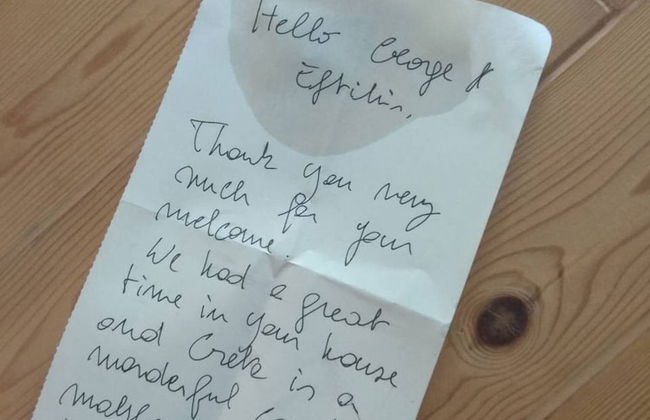 Hello George &
Eftihis,
Thank you very
much for your
welcome.
We had a great
time in your house
and Crete is a
wonderful